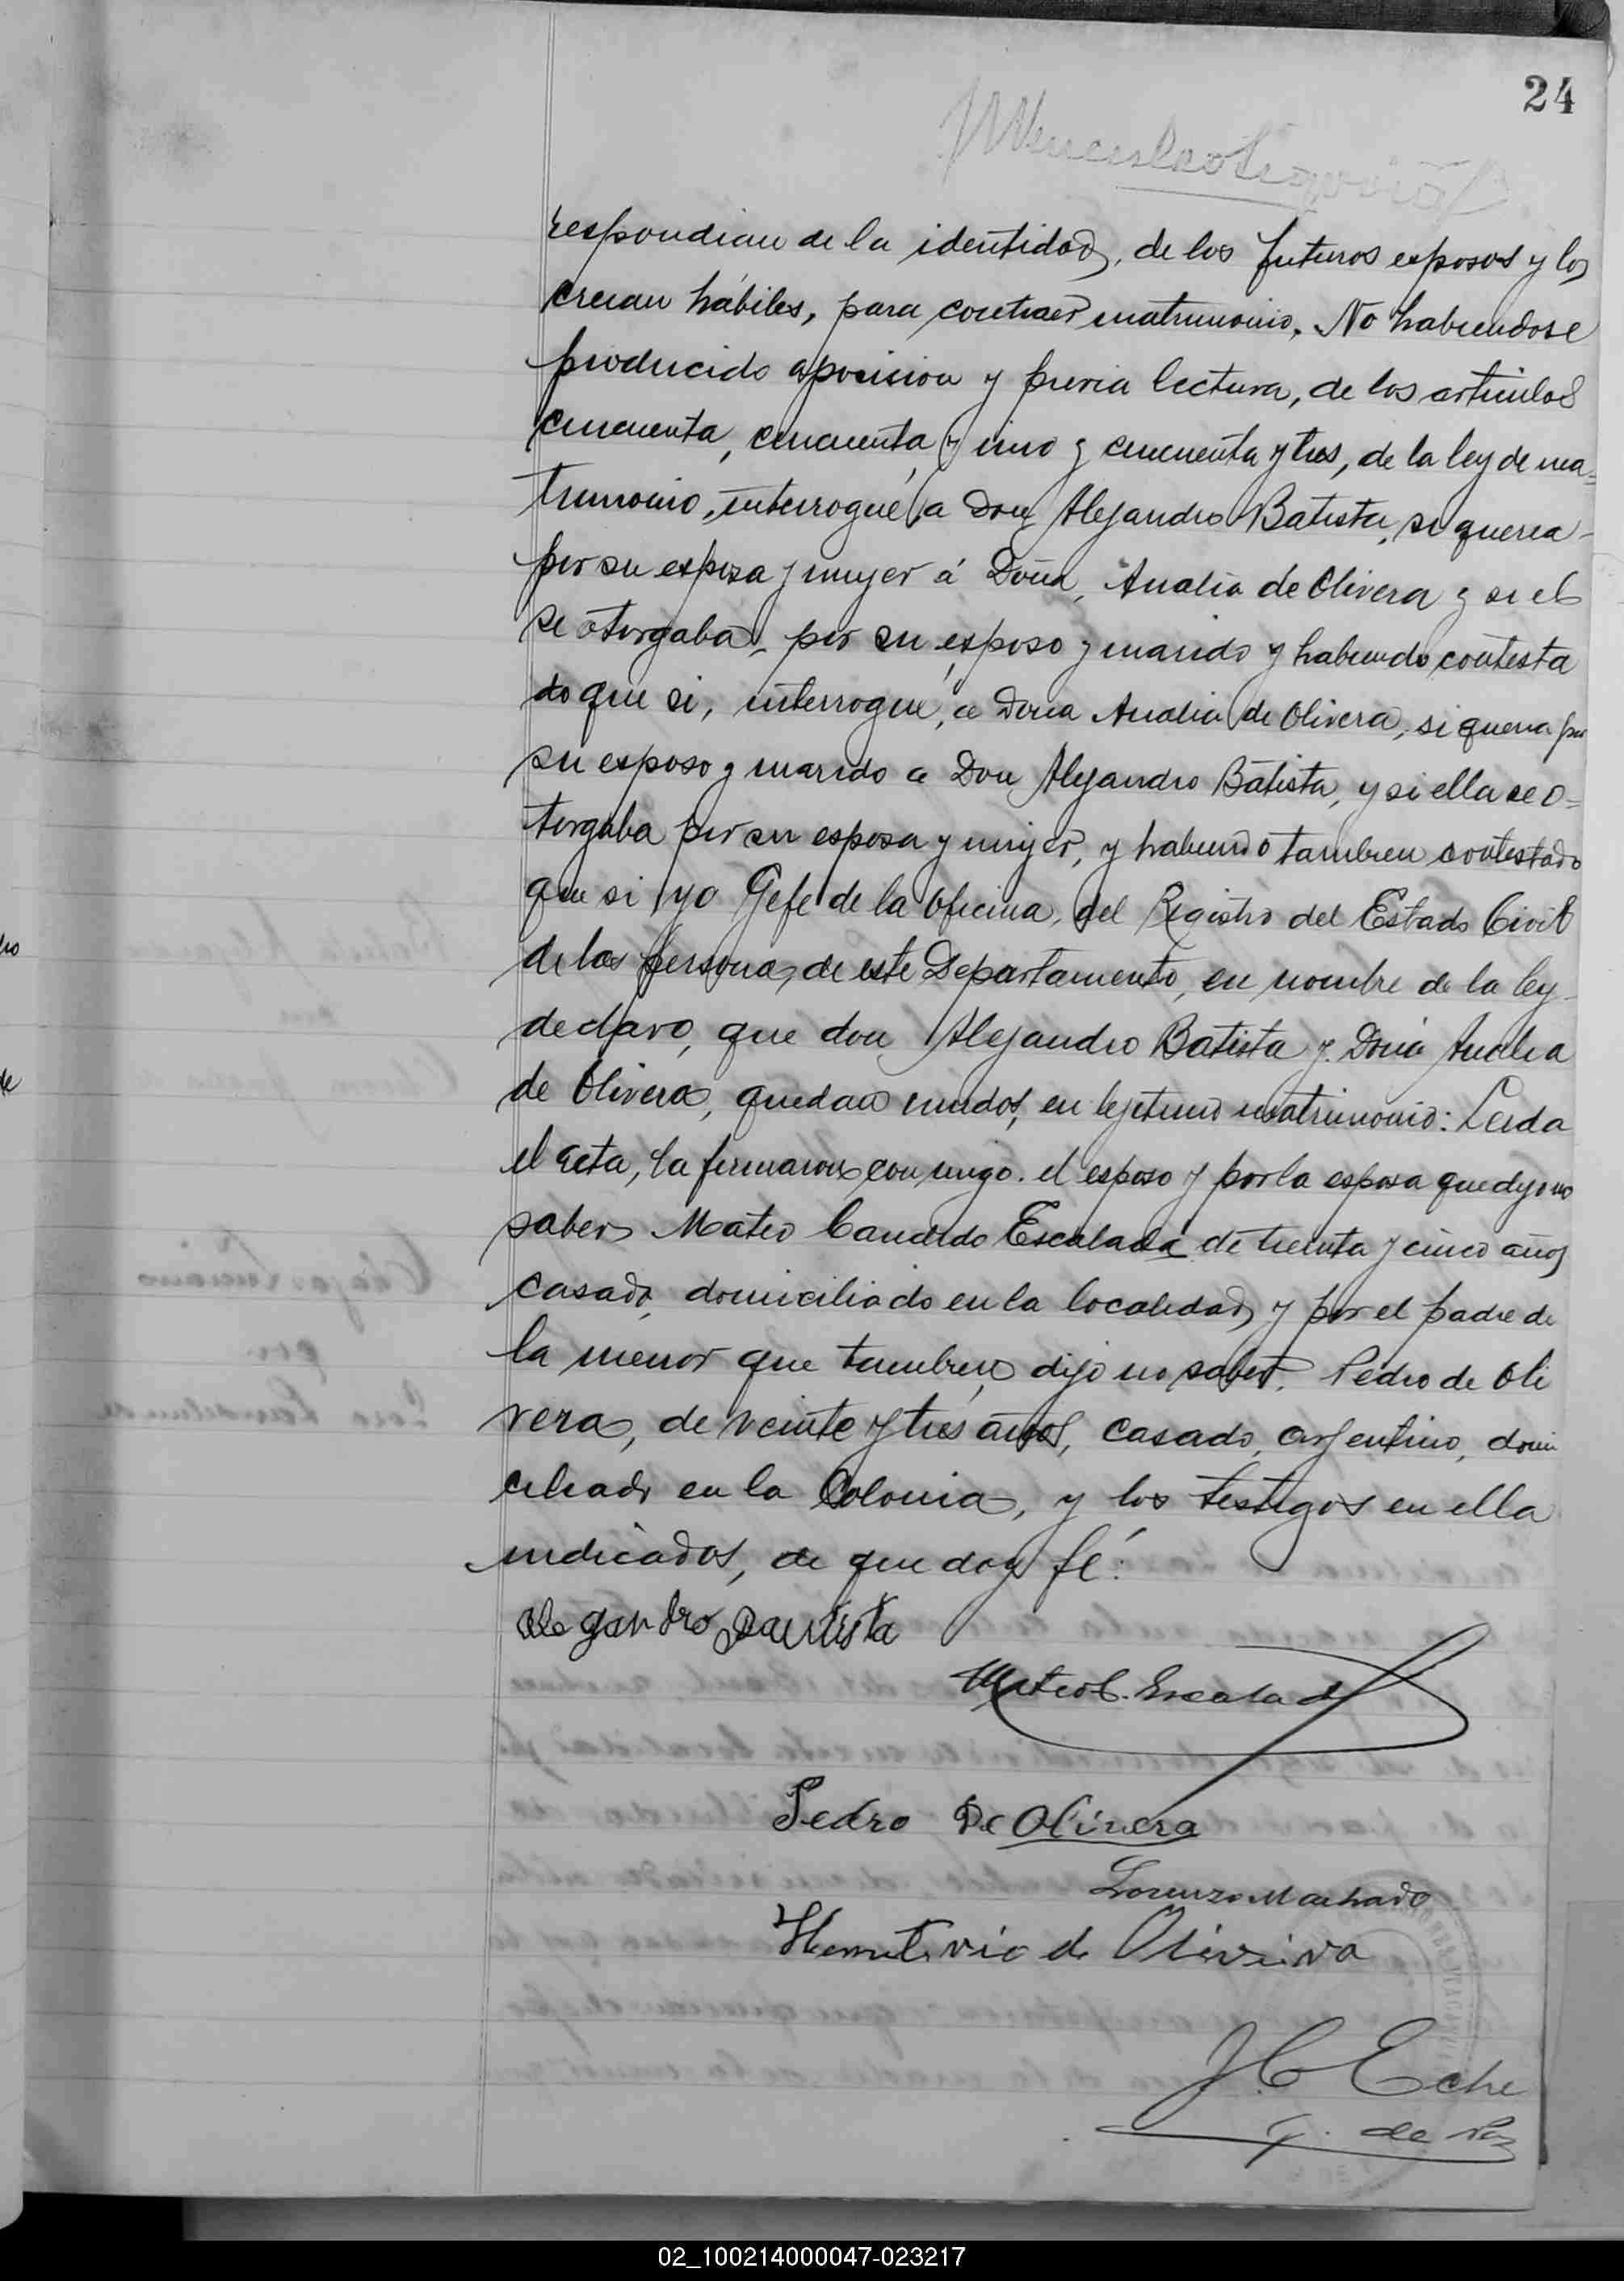 24
respondian de la identidad, de los futuros esposos y los
creian hábiles, para contraer matrimonio. No habiendose
producido oposicion y previa lectura, de los articulos
cincuenta, cincuenta y uno y cincuenta y tres, de la ley de ma=
trimonio, interrogué, a Don Alejandro Batista, si queria
por su esposa y mujer á Doña, Analia de Olivera y si el
se otorgaba, por su esposo y marido y habiendo contesta
do que si, interrogué, a Doña Analia de Olivera, si queria por
su esposo y marido a Don Alejandro Batista, y si ella se o=
torgaba por su esposa y mujer, y habiendo tambien contestado
que si yo Gefe de la Oficina, del Registro del Estado Civil
de las personas, de este Departamento, en nombre de la ley
declaro, que don Alejandro Batista y Doña Analia
de Olivera, quedan unidos, en lejitimo matrimonio: Leida
el acta, la firmaron conmigo. el esposo y por la esposa que dijo no
saber Mateo Candido Escalada de treinta y cinco años
casado, domiciliado en la localidad y por el padre de
la menor que tambien dijo no saber. Pedro de Oli
vera, de veinte y tres años, casado, argentino, domi
ciliado en la Colonia, y los testigos en ella
indicados, de que doy fé.
Alegandro Bautista
Mateo C. Escalada
Pedro De Olivera
Lorenzo Machado
de Oliveira
J C Eche
J. de Paz
02_100214000047-023217